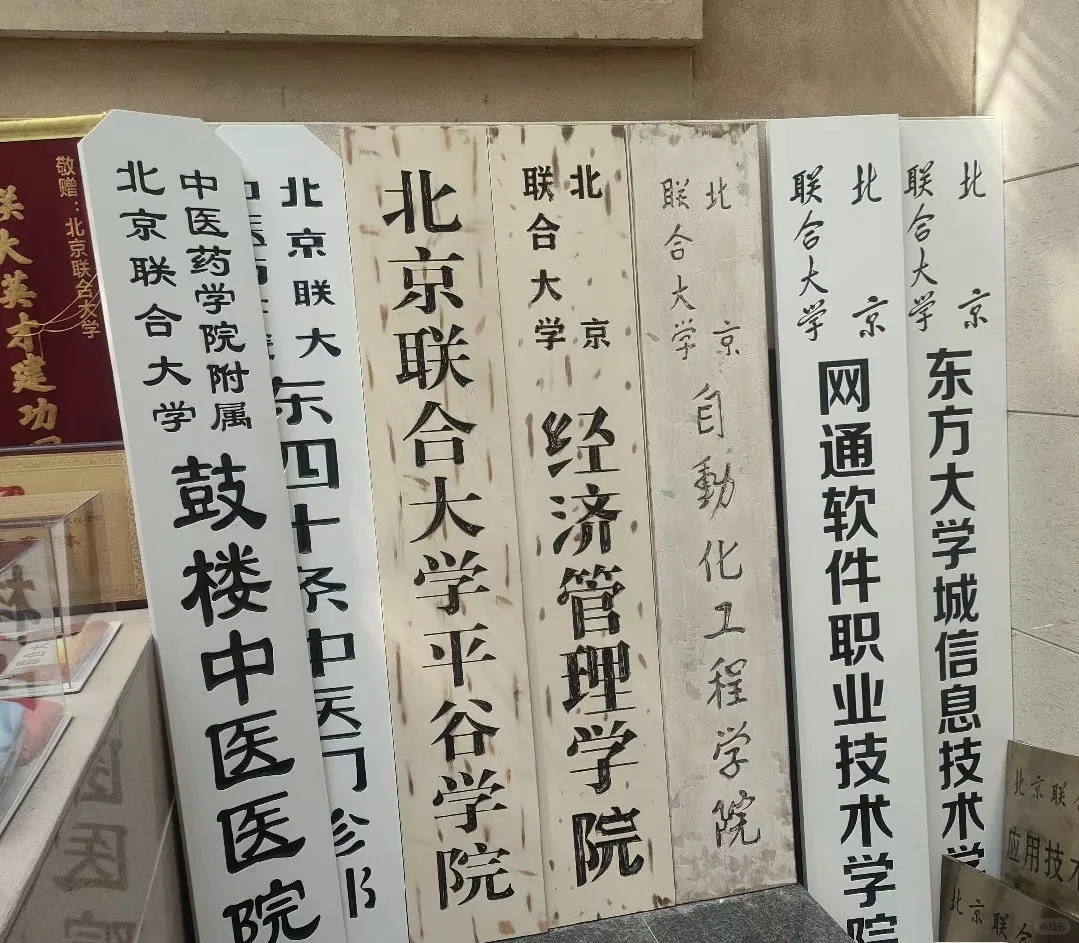 敬赠：北京联合大学
联大英才建功
北京联合大学
中医药学院附属
鼓楼中医医院
北京联大
东四十条中医门诊部
北京联合大学平谷学院
北京
联合大学
经济管理学院
北京
联合大学
自動化工程学院
北京
联合大学
网通软件职业技术学院
北京
联合大学
东方大学城信息技术学
北京联合
应用技术
北京联合
小红书